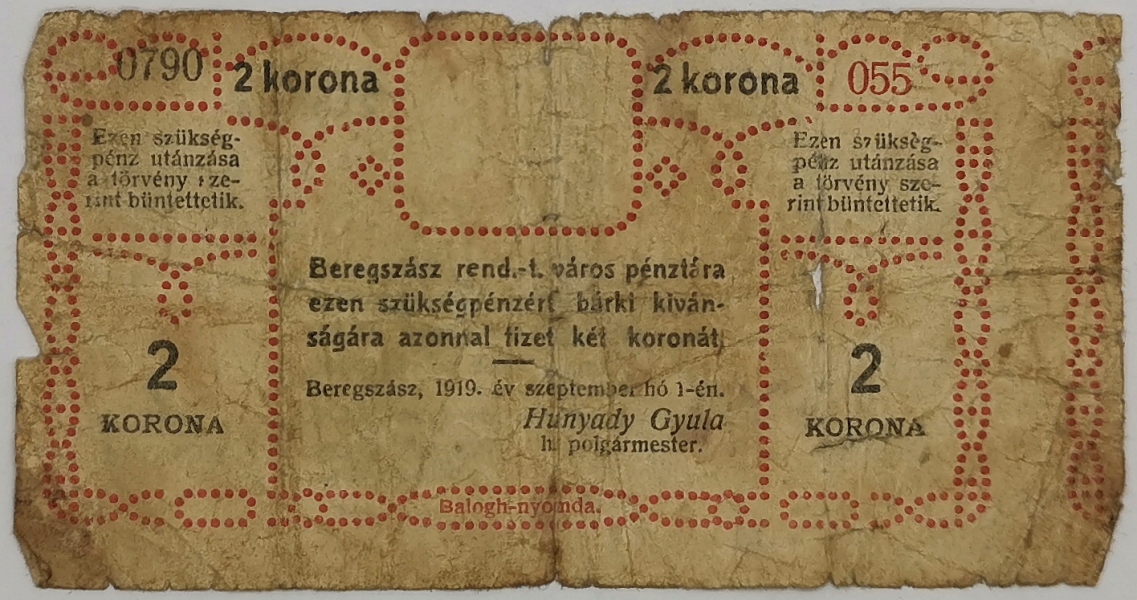 0790
2 korona
2 korona
055
Ezen szükség-
pénz utánzása
a törvény sze-
rint büntettetik.
Ezen szükség-
pénz utánzása
a törvény sze-
rint büntettetik.
Beregszász rend.-t. város pénztára
ezen szükségpénzért bárki kiván-
ságára azonnal fizet két koronát.
Beregszász, 1919. év szeptember hó 1-én.
Hunyady Gyula
h. polgármester.
2
KORONA
2
KORONA
Balogh-nyomda.